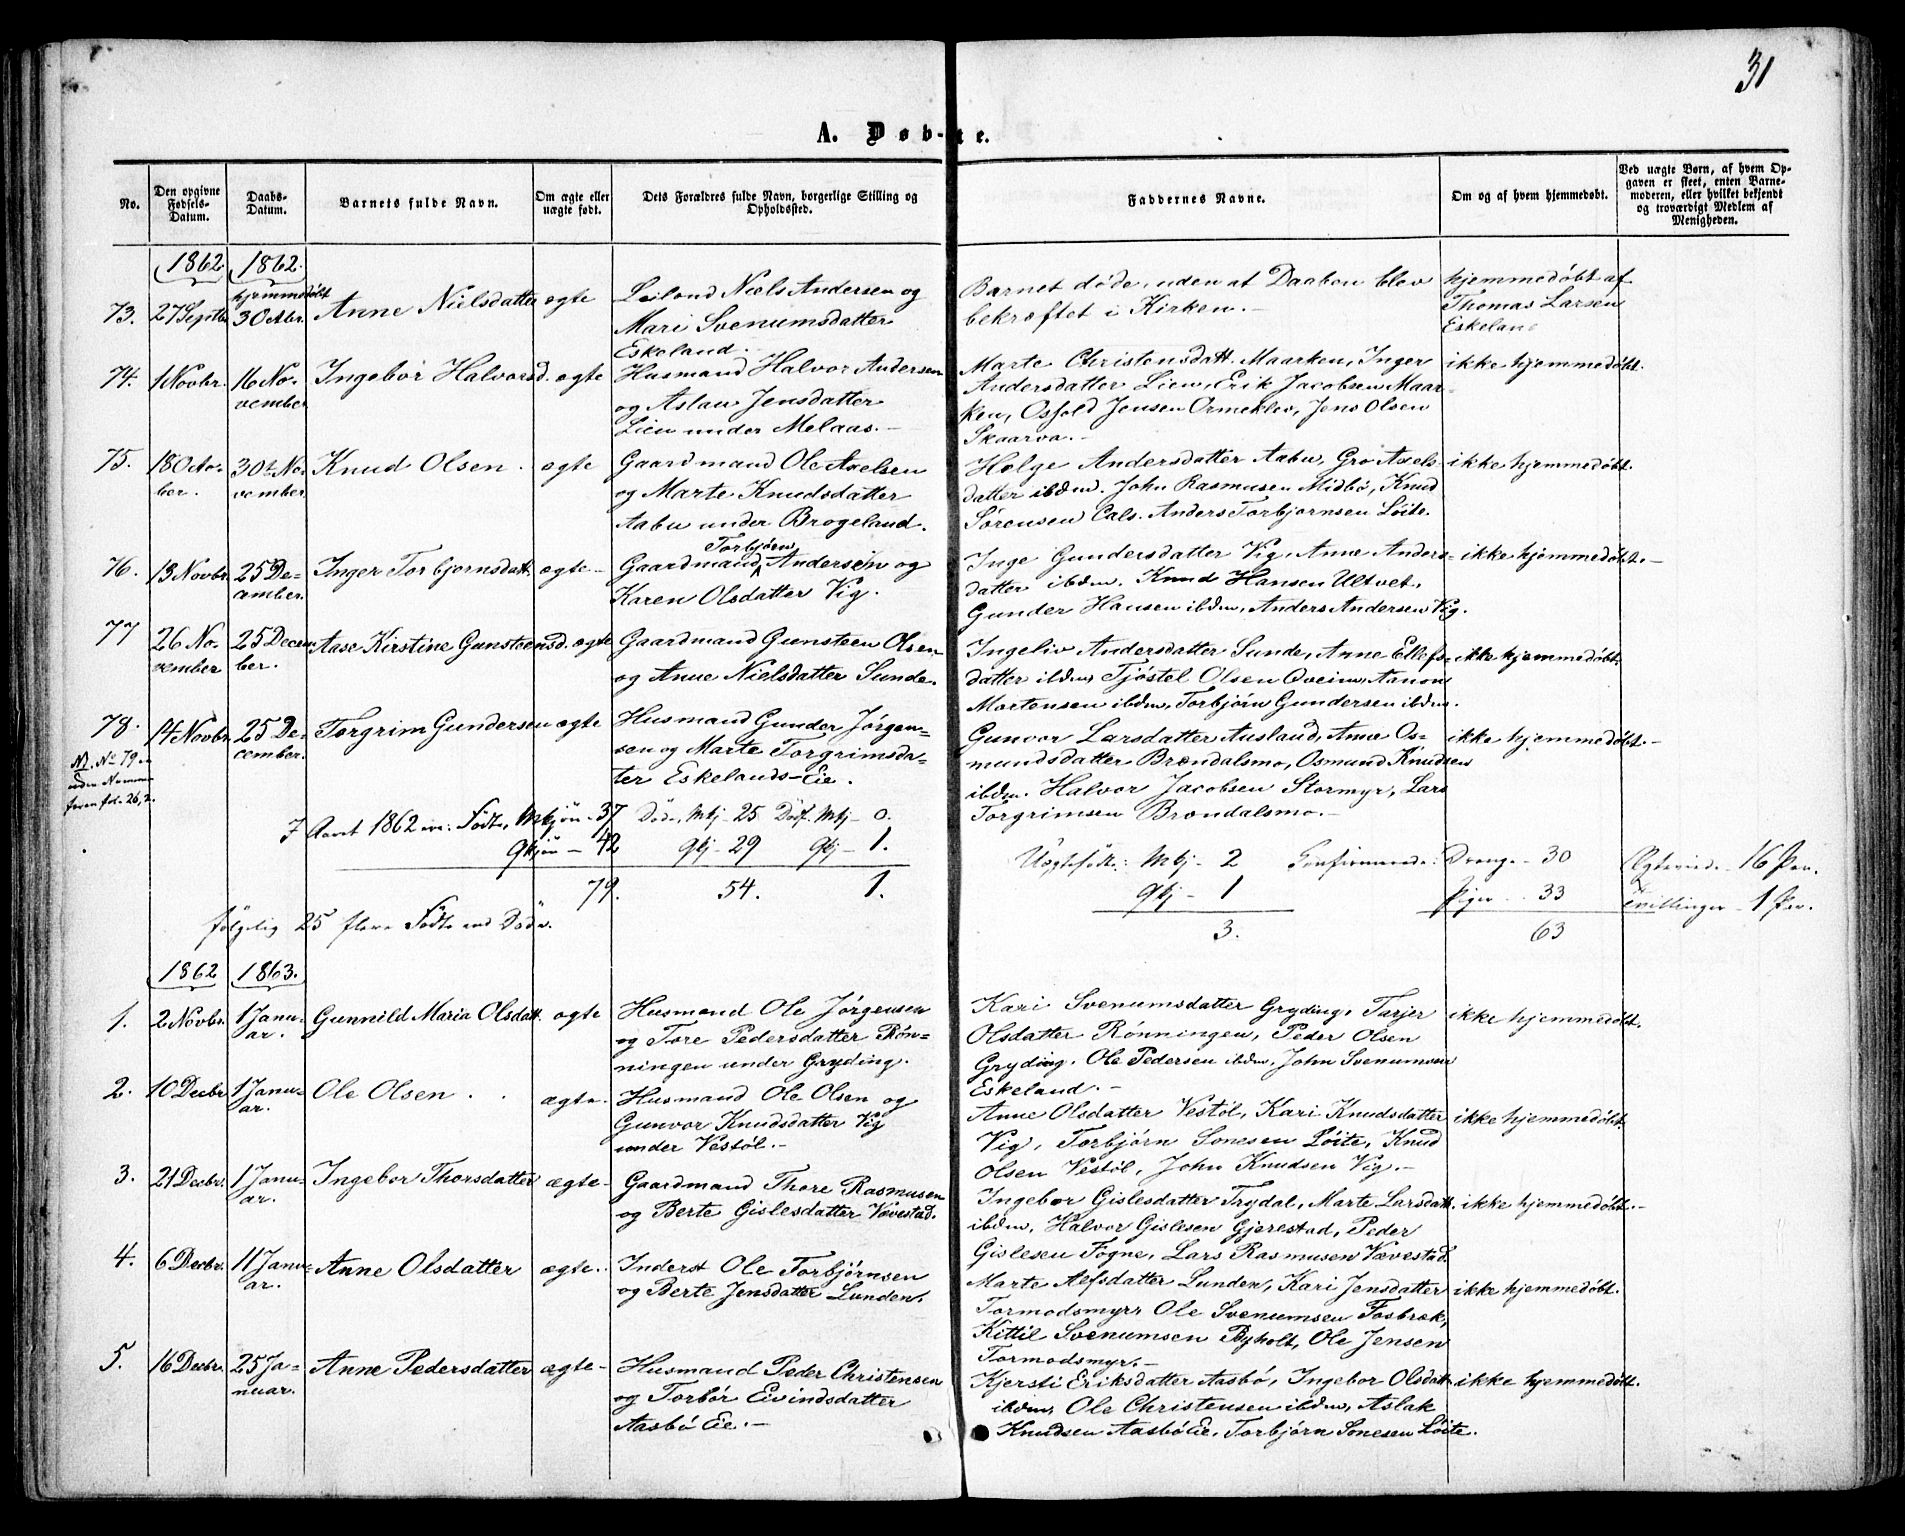 31
A. Døb-te.
No.
Den opgivne Fødsels-Datum.
Daabs-Datum.
Barnets fulde Navn.
Om ægte eller uægte født.
Dets Forældres fulde Navn, borgerlige Stilling og Opholdssted.
Faddernes Navne.
Om og af hvem hjemmedøbt.
Ved uægte Børn, af hvem Opgaven er skeet, enten Barnemoderen, eller hvilket bekjendt og troværdigt Medlem af Menigheden.
1862. 1862.
73. 27 Septbr. hjemmedøbt 3 Octbr. Anne Nielsdatter ægte
Leilænd Niels Andersen og
Mari Svenumsdatter
Eskeland.
Barnet døde, uden at Daaben blev
bekræftet i Kirken.
hjemmedøbt af
Thomas Larsen
Eskeland
74. 1 Novbr. 16 November Ingebor Halvorsd. ægte
Husmand Halvor Andersen
og Aslau Jensdatter
Lien under Melaas.
Marte Christensdatt. Maarken, Inger
Andersdatter Lien, Erik Jacobsen Maar-
ken, Osfold Jensen Ormeklev, Jens Olsen
Skaarva.
ikke hjemmedøbt.
75. 18 October. 30te November Knud Olsen. ægte
Gaardmand Ole Axelsen
og Marte Knudsdatter
Aabu under Brogeland.
Helge Andersdatter Aabu, Gro Axels-
datter ibdm. John Rasmusen Midbø, Knud
Sørensen Cals. Anders Torbjørnsen Løite.
ikke hjemmedøbt.
76. 13 Novbr. 25 December. Inger Torbjørnsdatt. ægte
Torbjørn
Gaardmand Andersen og
Karen Olsdatter Vig.
Inge Gundersdatter Vig, Anne Anders-
datter ibdm. Knud Hansen Ultvet,
Gunder Hansen ibdm, Anders Andersen Vig.
ikke hjemmedøbt.
77 26 November 25 December. Aase Kirstine Gunsteensd. ægte
Gaardmand Gunsteen Olsen
og Anne Nielsdatter Sunde.
Ingeliv Andersdatter Sunde, Anne Ellefs-
datter ibdm, Tjøstel Olsen Qveim, Aanon
Mortensen ibdm, Torbjørn Gundersen ibdm.
ikke hjemmedøbt.
78. 14 Novbr. 25 December. Torgrim Gundersen ægte
Husmand Gunder Jørgen-
sen og Marte Torgrimsda-
ter Eskelands-Eie.
Gunvor Larsdatter Ausland, Anne Os-
mundsdatter Brøndalsmo, Osmund Knudsen
ibdm. Halvor Jacobsen Stormyr, Lars
Torgrimsen Brøndalsmo.
ikke hjemmedøbt.
No 79
uden Nummer
foran fol. 26,2.
I Aaret 1862 ere: Fødte, Mkjøn - 37 Døde, Mkj - 25 Dødf. Mkj - 0.
Qkjøn - 42 Qkj - 29 Qkj - 1.
79. 54. 1.
Uægtefødte: Mkj - 2 Confirmerede: Drenge - 30 Ægteviede - 16 Par.
Qkj - 1 Piger - 33 Tvillinger - 1 Par.
3. 63
følgelig 25 flere Fødte end Døde.
1862 1863.
1. 2 Novbr. 1 Januar. Gunnild Maria Olsdatt. ægte
Husmand Ole Jørgensen
og Tore Pedersdatter Røn-
ningen under Gryding.
Kari Svenumsdatter Gryding, Tarjer
Olsdatter Rønningen, Peder Olsen
Gryding, Ole Pedersen ibdm, John Svenumsen
Eskeland.
ikke hjemmedøbt.
2. 10 Decbr. 1 Januar. Ole Olsen. ægte
Husmand Ole Olsen og
Gunvor Knudsdatter Vig
under Vestøl.
Anne Olsdatter Vestøl, Kari Knudsdatter
Vig, Torbjørn Sonesen Løite, Knud
Olsen Vestøl, John Knudsen Vig.
ikke hjemmedøbt.
3. 21 Decbr. 1 Januar. Ingebor Thorsdatter ægte
Gaardmand Thore Rasmusen
og Berte Gislesdatter Vævestad.
Ingebor Gislesdatter Trydal, Marte Larsdatt.
ibdm, Halvor Gislesen Gjerestad, Peder
Gislesen Fogne, Lars Rasmusen Vævestad.
ikke hjemmedøbt.
4. 6 Decbr. 11 Januar. Anne Olsdatter ægte.
Inderst Ole Torbjørnsen
og Berte Jensdatter Lunden.
Marte Alfsdatter Lunden, Kari Jensdatter
Tormodsmyr, Ole Svenumsen Fosbræk,
Kittil Svenumsen Byholt, Ole Jensen
Tormodsmyr.
ikke hjemmedøbt.
5. 16 Decbr. 25 Januar. Anne Pedersdatter ægte
Husmand Peder Christensen
og Torbør Eivindsdatter
Aasbø Eie.
Kjersti Eriksdatter Aasbø, Ingebor Olsdatt.
ibdm, Ole Christensen ibdm, Aslak
Knudsen Aasbø Eie, Torbjørn Sonesen Løite.
ikke hjemmedøbt.